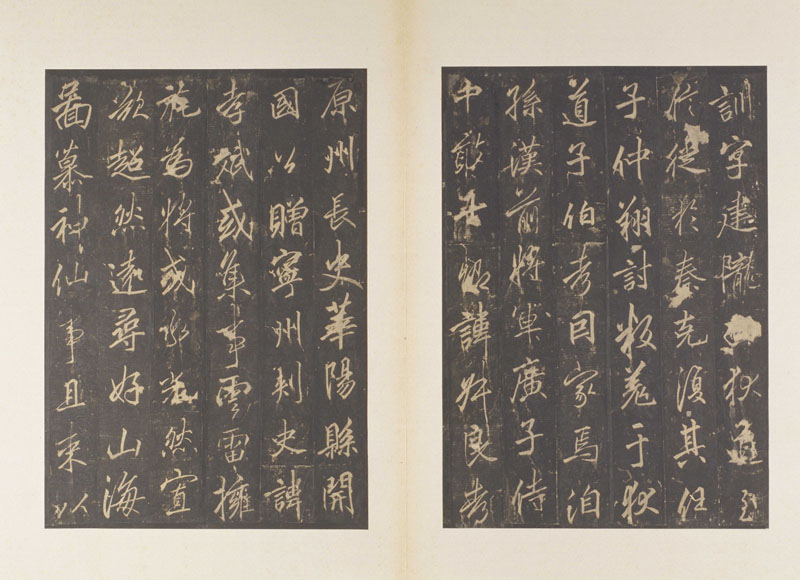 訓字建隴狄道
徙於秦克復其任
子仲翔討叛羌于狄
道子伯考因家焉洎
孫漢前將軍廣子侍
中敢諱良考
原州長史華陽縣開
國公贈寧州刺史諱
孝斌或集事雲雷擁
旄為將或然宣
欲超然遠尋好山海
啚慕神仙事且束以